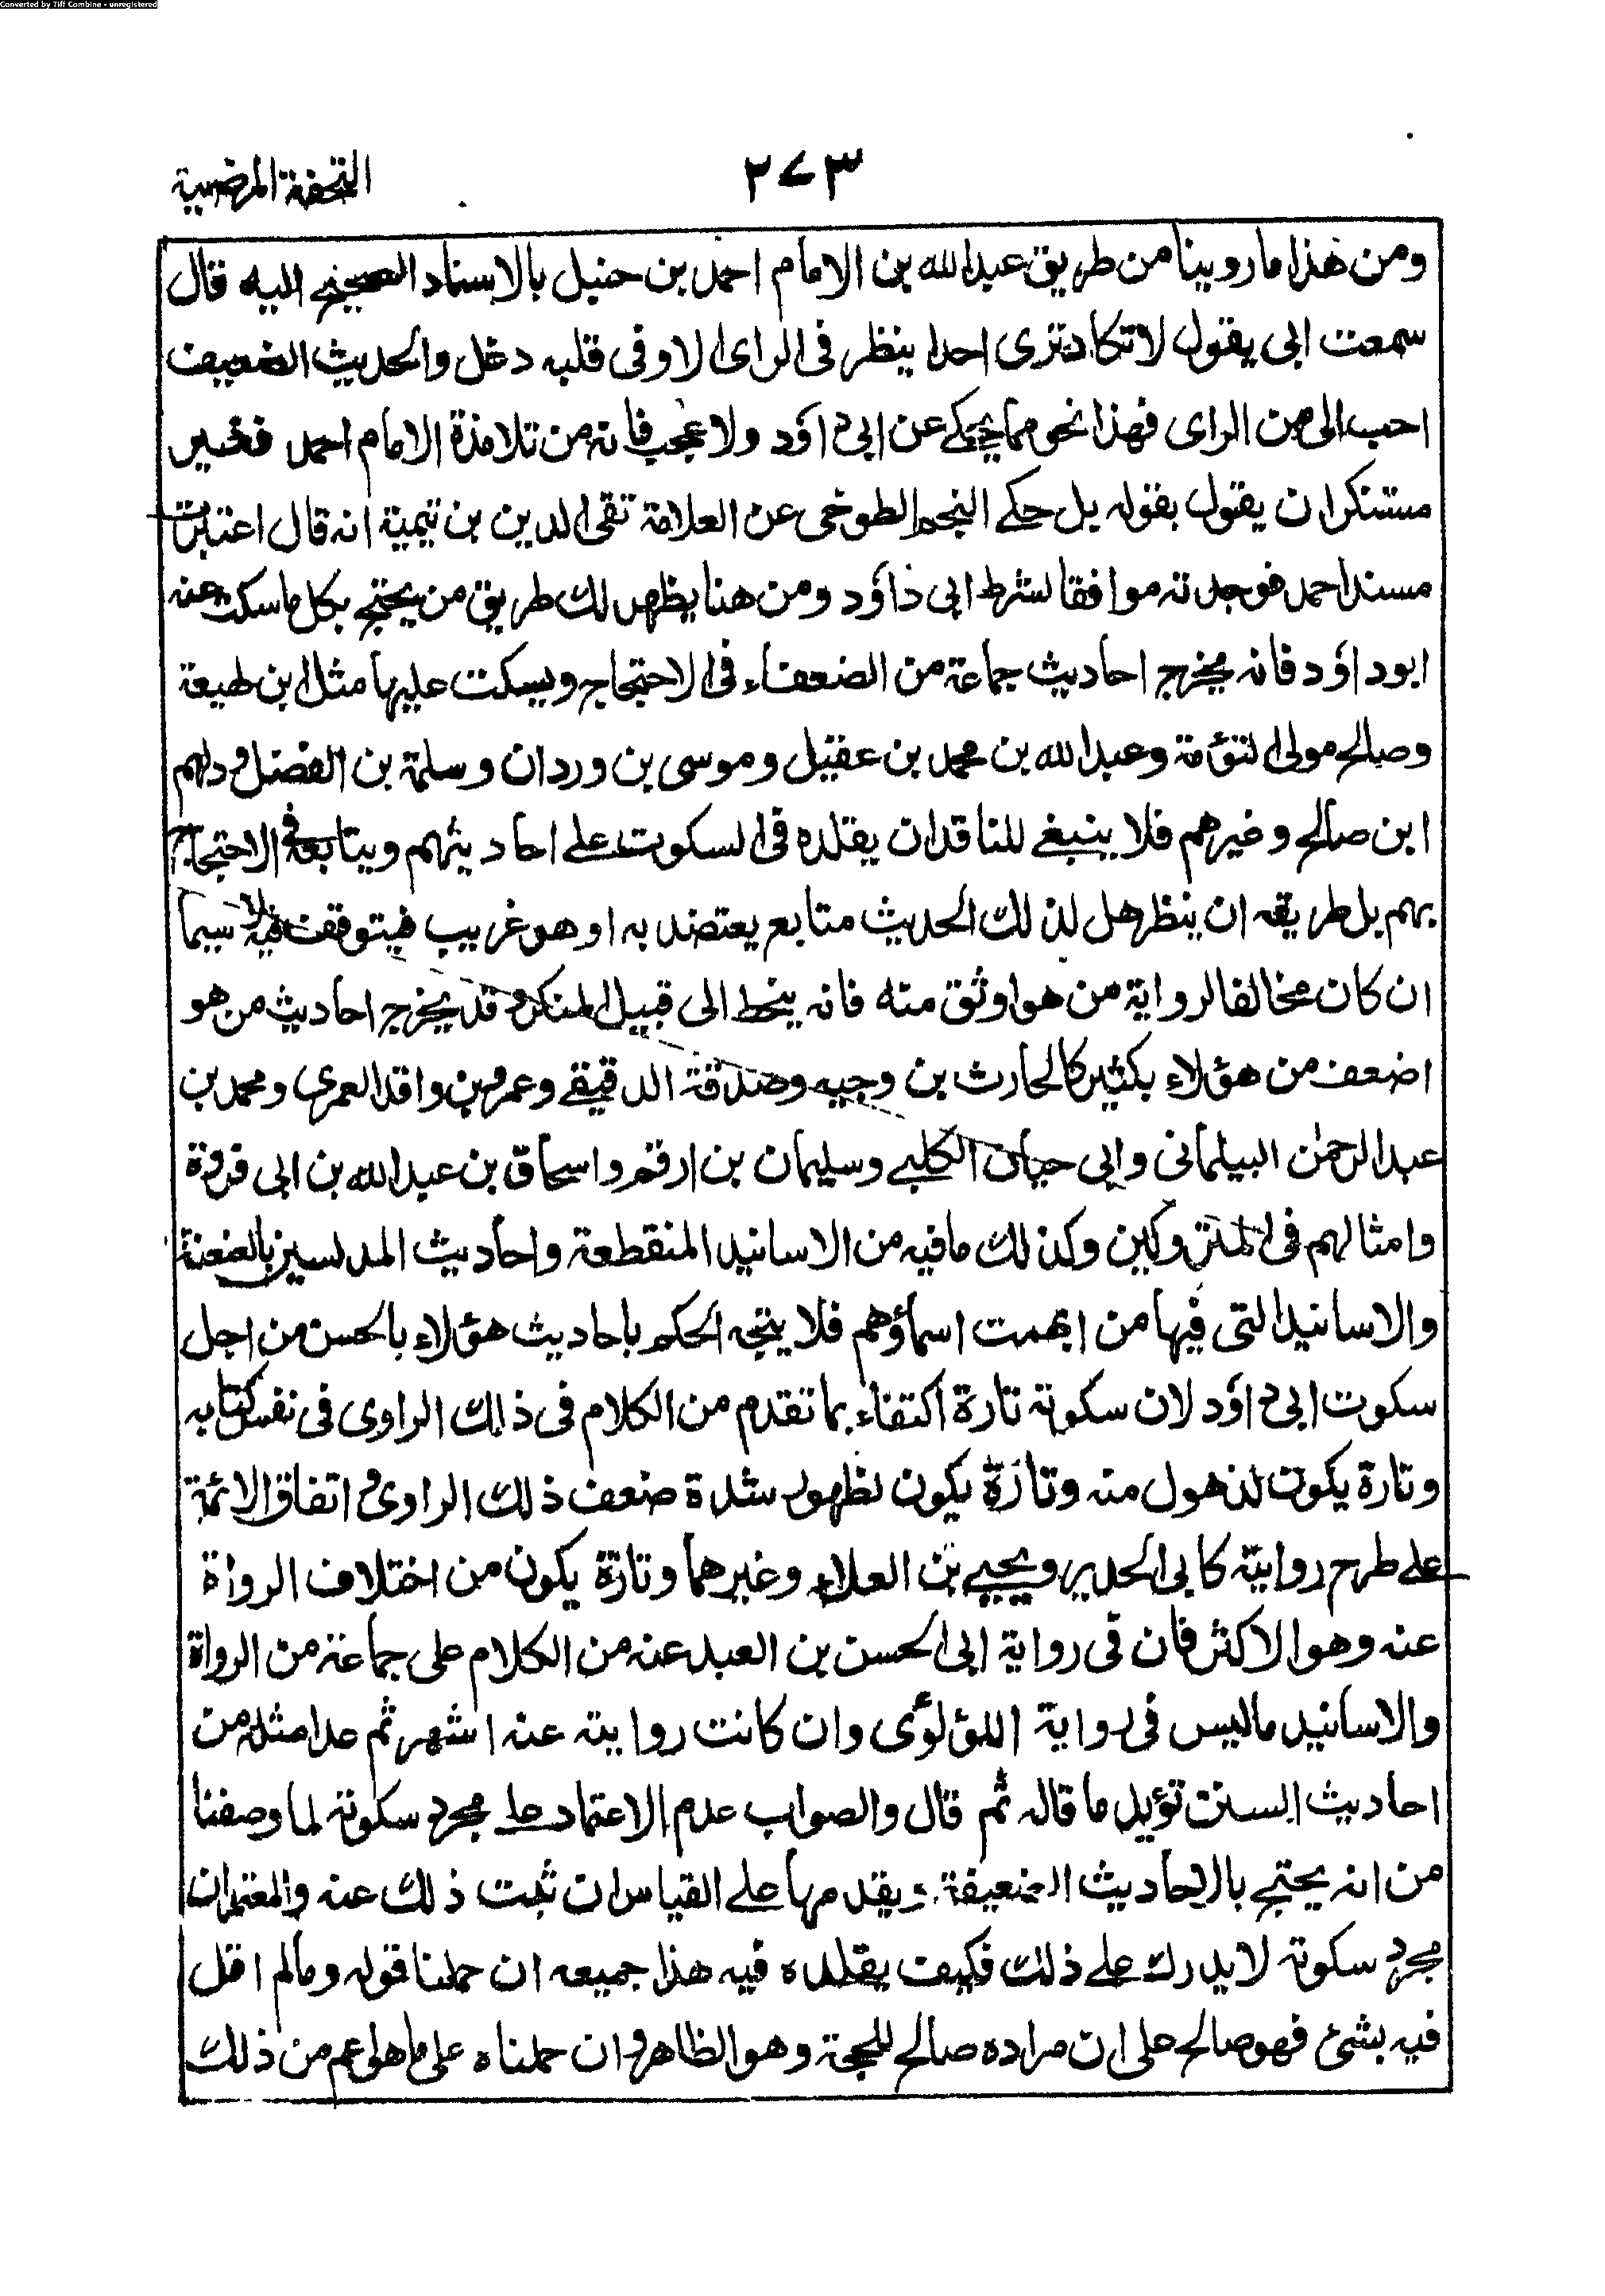 Converted by Tiff Combine - unregistered
التحفة المرضية
٢٧٣
ومن هذا ما روينا من طريق عبد الله بن الامام احمد بن حنبل بالاسناد الصحيح اليه قال
سمعت ابى يقول لا تكاد ترى احدا ينظر فى الراى الا وفى قلبه دغل والحديث الضعيف
احب الى من الراى فهذا نحو مما يحكى عن ابى داؤد ولا عجب فانه من تلامذة الامام احمد فغير
مستنكر ان يقول بقوله بل حكى النجم الطوخى عن العلامة تقى الدين بن تيمية انه قال اعتبرت
مسند احمد فوجدته موافقا لشرط ابى داؤد ومن هنا يظهر لك طريق من يحتج بكل ما سكت عنه
ابو داؤد فانه يخرج احاديث جماعة من الضعفاء فى الاحتجاج ويسكت عليها مثل ابن لهيعة
وصالح مولى التؤمة وعبد الله بن محمد بن عقيل وموسى بن وردان وسلمة بن الفضل ودلهم
ابن صالح وغيرهم فلا ينبغى للناقد ان يقلده فى السكوت على احاديثهم ويتابعه فى الاحتجاج
بهم بل طريقه ان ينظر هل لذلك الحديث متابع يعتضد به او هو غريب فيتوقف فيه لا سيما
ان كان مخالفا لرواية من هو اوثق منه فانه ينحط الى قبيل المنكر وقد يخرج احاديث من هو
اضعف من هؤلاء بكثير كالحارث بن وجيه وصدقة الدقيقى وعمرو بن واقد العمرى ومحمد بن
عبد الرحمٰن البيلمانى وابى حيان الكلبى وسليمان بن ارقم واسحاق بن عبد الله بن ابى فروة
وامثالهم فى المتروكين وكذلك ما فيه من الاسانيد المنقطعة واحاديث المدلسين بالعنعنة
والاسانيد التى فيها من ابهمت اسماؤهم فلا يتجه الحكم باحاديث هؤلاء بالحسن من اجل
سكوت ابى داؤد لان سكوته تارة اكتفاء بما تقدم من الكلام فى ذلك الراوى فى نفس كتابه
وتارة يكون لذهول منه وتارة يكون لظهور شدة ضعف ذلك الراوى واتفاق الائمة
على طرح روايته كابى الحدير ويحيى بن العلاء وغيرهما وتارة يكون من اختلاف الرواة
عنه وهو الاكثر فان فى رواية ابى الحسن بن العبد عنه من الكلام على جماعة من الرواة
والاسانيد ما ليس فى رواية اللؤلؤى وان كانت روايته عنه اشهر ثم عد امثلة من
احاديث السنن تؤيد ما قاله ثم قال والصواب عدم الاعتماد على مجرد سكوته لما وصفنا
من انه يحتج بالاحاديث الضعيفة ويقدمها على القياس ان ثبت ذلك عنه والمعتمد ان
مجرد سكوته لا يدرك على ذلك فكيف يقلده فيه هذا جميعه ان حملنا قوله وما لم اقل
فيه بشئ فهو صالح على ان مراده صالح للحجة وهو الظاهر وان حملناه على ما هو اعم من ذلك